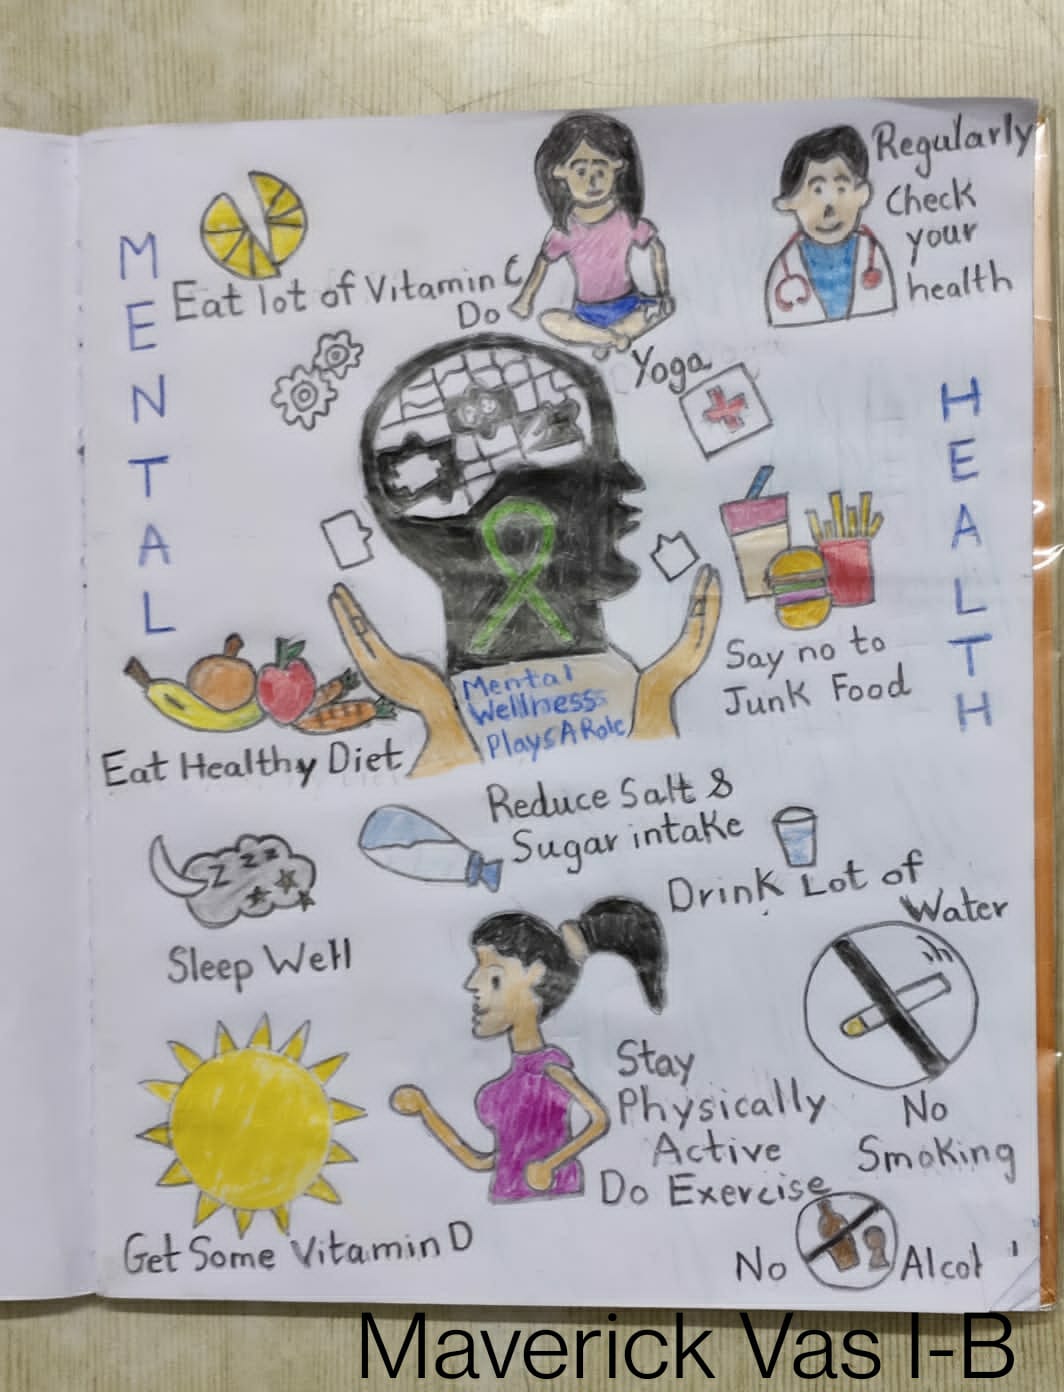 MENTAL
HEALTH
Eat lot of Vitamin C
Do
Yoga
Regularly
Check
your
health
Say no to
Junk Food
Mental
Wellness
Plays A Role
Eat Healthy Diet
Reduce Salt &
Sugar intake
Drink Lot of
Water
zzz
Sleep Well
Stay
Physically
Active
Do Exercise
No
Smoking
Get Some Vitamin D
No
Maverick Vas I-B